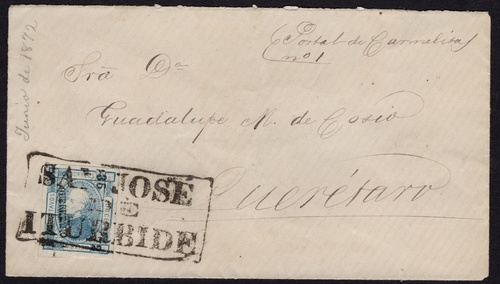 Junio de 1872
Portal de Carmelitas
nº 1
Srā Dᵃ
Guadalupe M. de Cosio
Querétaro
SAN JOSE
DE
ITURBIDE